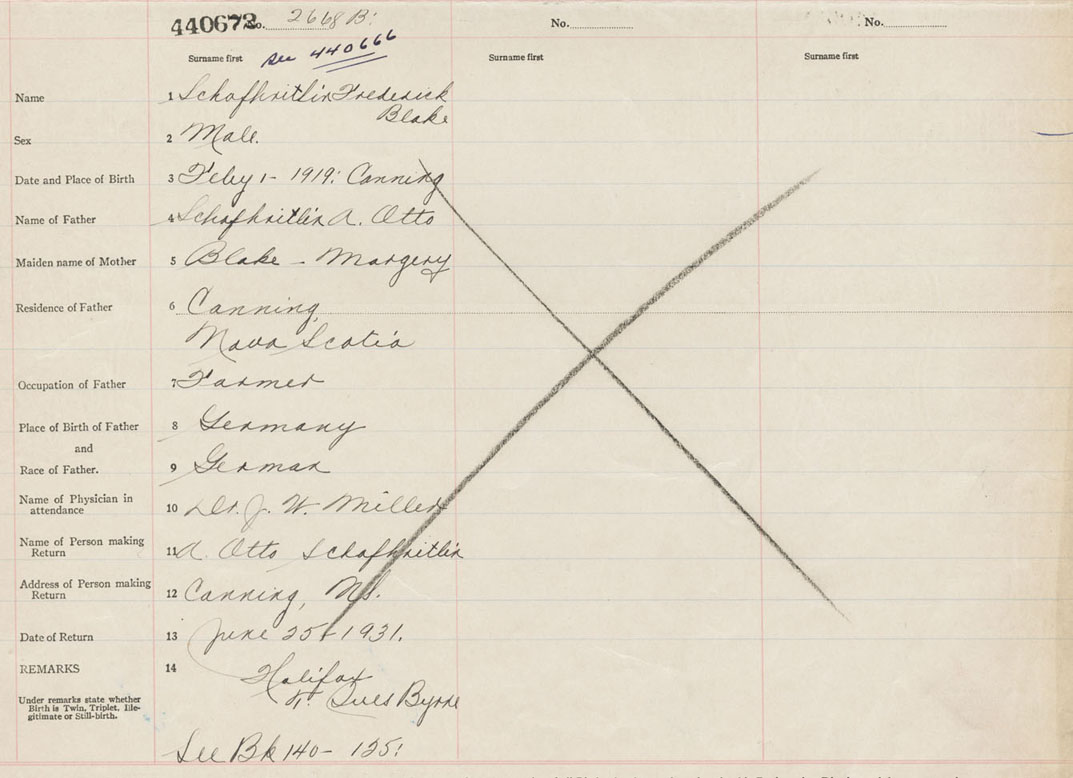 440673 No. 2668 B: No. No.
Surname first see 440666 Surname first Surname first
Name 1 Schafheitlin Frederick
Blake
Sex 2 Male.
Date and Place of Birth 3 Feby 1 - 1919: Canning
Name of Father 4 Schafheitlin A. Otto
Maiden name of Mother 5 Blake - Margery
Residence of Father 6 Canning
Nova Scotia
Occupation of Father 7 Farmer
Place of Birth of Father 8 Germany
and
Race of Father. 9 German
Name of Physician in
attendance 10 Dr. J. W. Miller
Name of Person making
Return 11 A. Otto Schafheitlin
Address of Person making
Return 12 Canning, NS.
Date of Return 13 June 25 1931.
REMARKS 14 Halifax
Under remarks state whether
Birth is Twin, Triplet, Ille-
gitimate or Still-birth.
Byrne
See Bk 140 - 125: